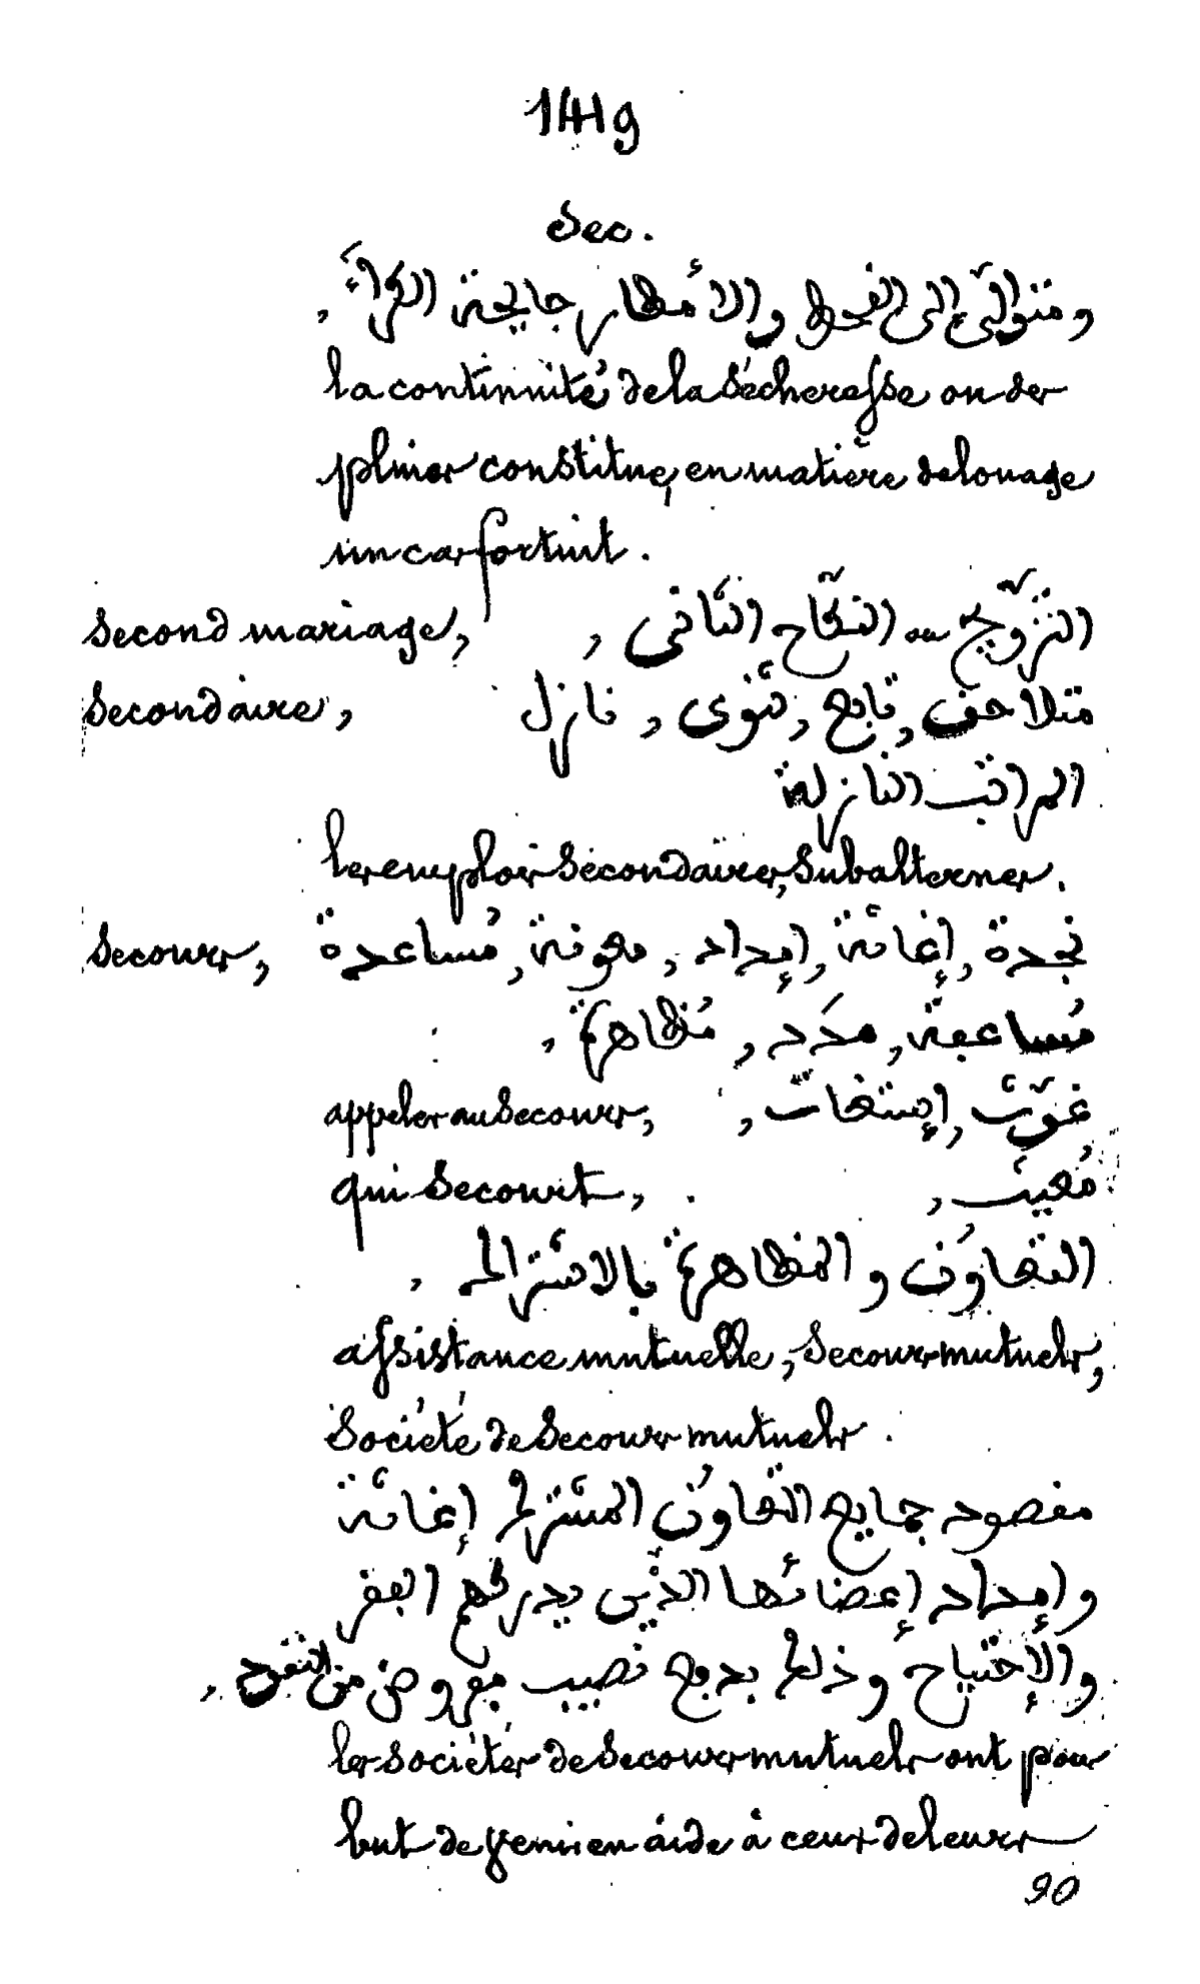 1449
Sec.
و متوالي إلى القحط والأمطار جايحة الكراء,
la continuité de la sécheresse ou des
pluies constitue, en matière de louage
un cas fortuit.
second mariage, التزوّج ou النكاح الثاني,
secondaire, متلاحق, تابع, ثنوى, نازل
المراتب النازلة
les emplois secondaires, subalternes.
secours, نجدة, إغاثة, إمداد, معونة, مُساعدة
مُساعفة, مدَد, مُظاهرة,
appeler au secours, غوّث, إستغاث,
qui secourt, مُغيث,
التعاوُن و المظاهرة بالاشتراك,
assistance mutuelle, secours mutuels,
société de secours mutuels.
مقصود جمايع التعاوُن المشترك إغاثة
وإمداد إعضائها الذّين يدركهم الفقر
والإحتياج وذلك بدفع نصيب مفروض من النقود,
les sociétés de secours mutuels ont pour
but de venir en aide à ceux de leurs
90